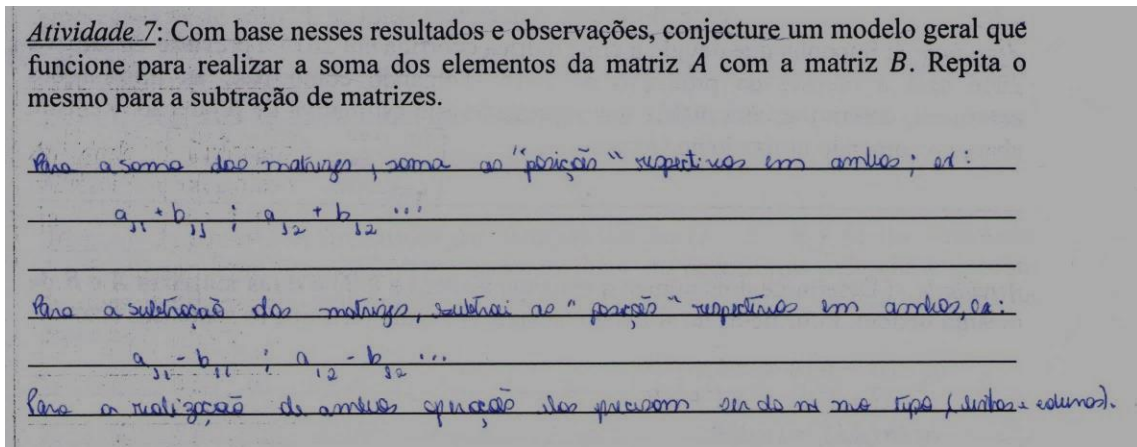 Atividade 7: Com base nesses resultados e observações, conjecture um modelo geral que
funcione para realizar a soma dos elementos da matriz A com a matriz B. Repita o
mesmo para a subtração de matrizes.
Para a soma das matrizes, soma as "posição" respectivas em ambas; ex:
a₁₁ + b₁₁ ; a₁₂ + b₁₂ ...
Para a subtração das matrizes, subtrai as "posição" respectivas em ambas, ex:
a₁₁ - b₁₁ ; a₁₂ - b₁₂ ...
Para a realização de ambas operação elas precisam ser do mesmo tipo (linhas e colunas).